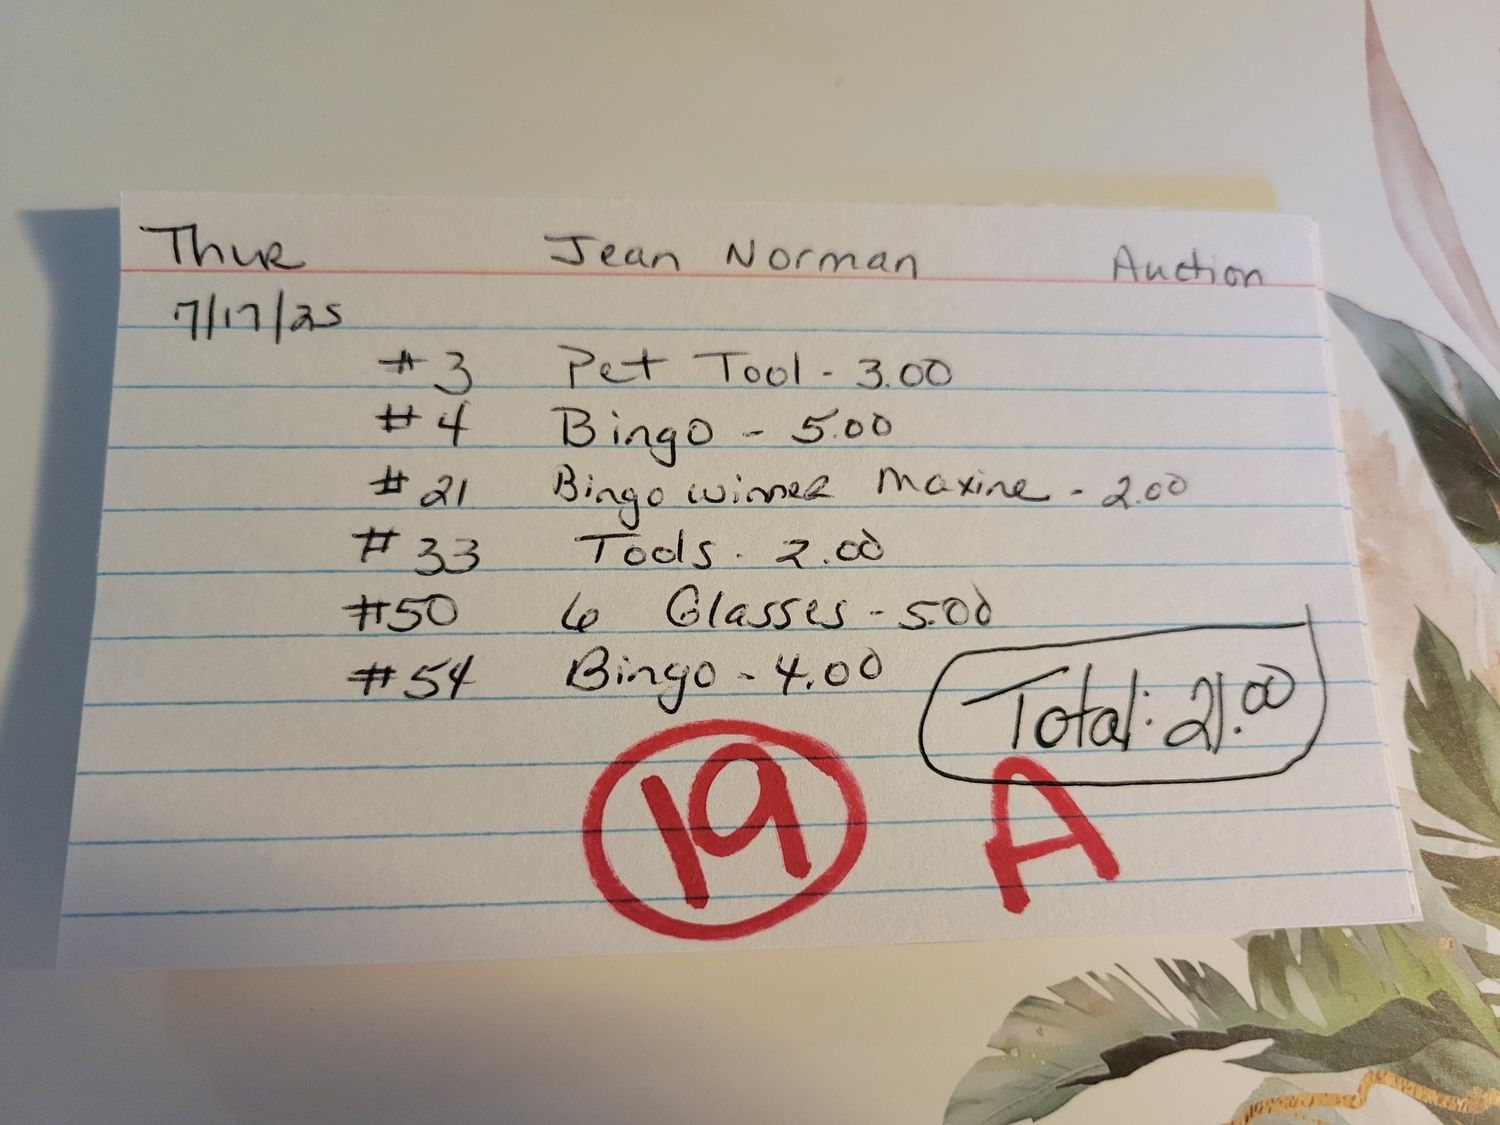 Thur Jean Norman Auction
7/17/25
#3 Pet Tool - 3.00
#4 Bingo - 5.00
#21 Bingo winner Maxine - 2.00
#33 Tools - 2.00
#50 6 Glasses - 5.00
#54 Bingo - 4.00
Total: 21.00
19 A